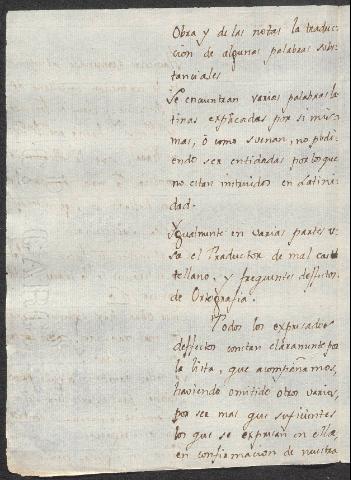 Obra y de las notas la traduc
cion de algunas palabras subs
tanciales
Se encuentran varias palabras la
tinas explicadas por si mis
mas, ó como suenan, no pudi
endo ser entididas por los que
no estan instruidos en Latini
dad.
Ygualmente en varias partes u
sa el Traductor de mal cas
tellano, y frequentes deffectos
de Ortografia.
Todos los expresados
deffectos constan claramente por
la lista, que acompañamos,
haviendo omitido otros varios,
por ser mas que sufisientes
los que se expresan en ella,
en confirmacion de nuestra